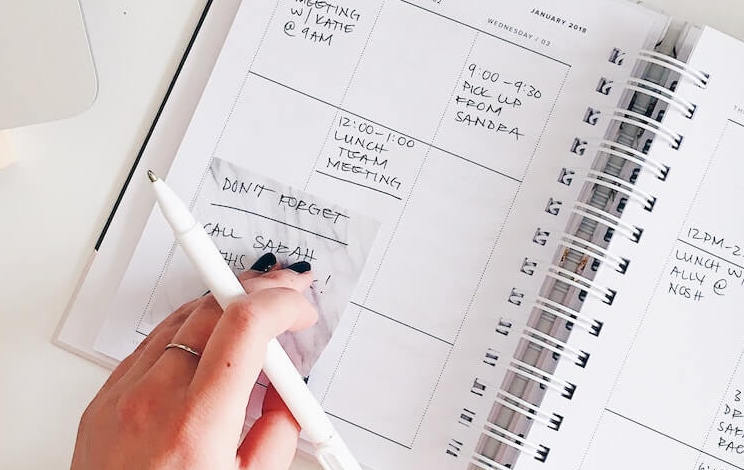 MEETING
W/ KATIE
@ 9AM
JANUARY 2018
WEDNESDAY / 03
9:00-9:30
PICK UP
FROM
SANDRA
12:00-1:00
LUNCH
TEAM
MEETING
DON'T FORGET
CALL SARAH
THIS !
12PM-2
LUNCH W/
ALLY @
NOSH